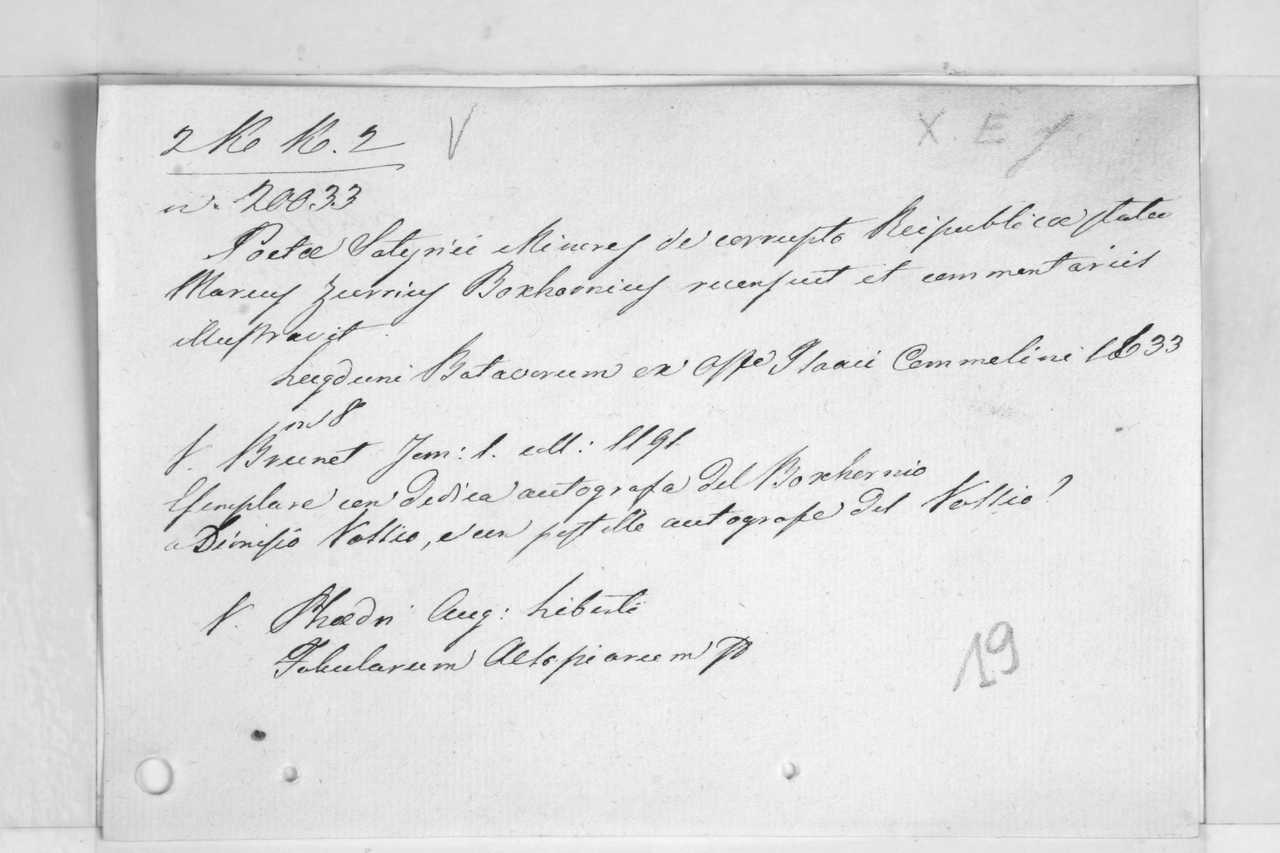 2 K K. 2 V X. E
n. 20033
Poetæ Satyrici Minores de corrupto Reipublicæ statu
Marcus Zuerius Boxhornius recensuit et commentariis
illustravit
Lugduni Batavorum ex offe Isaaci Commelini 1633
in 8
V. Brunet Tom: 1. coll: 1191
Esemplare con dedica autografa del Boxhornio
a Dionisio Vossio, e con postille autografe del Vossio?
V. Phædri Aug: Liberti
Fabularum Aesopiarum
19